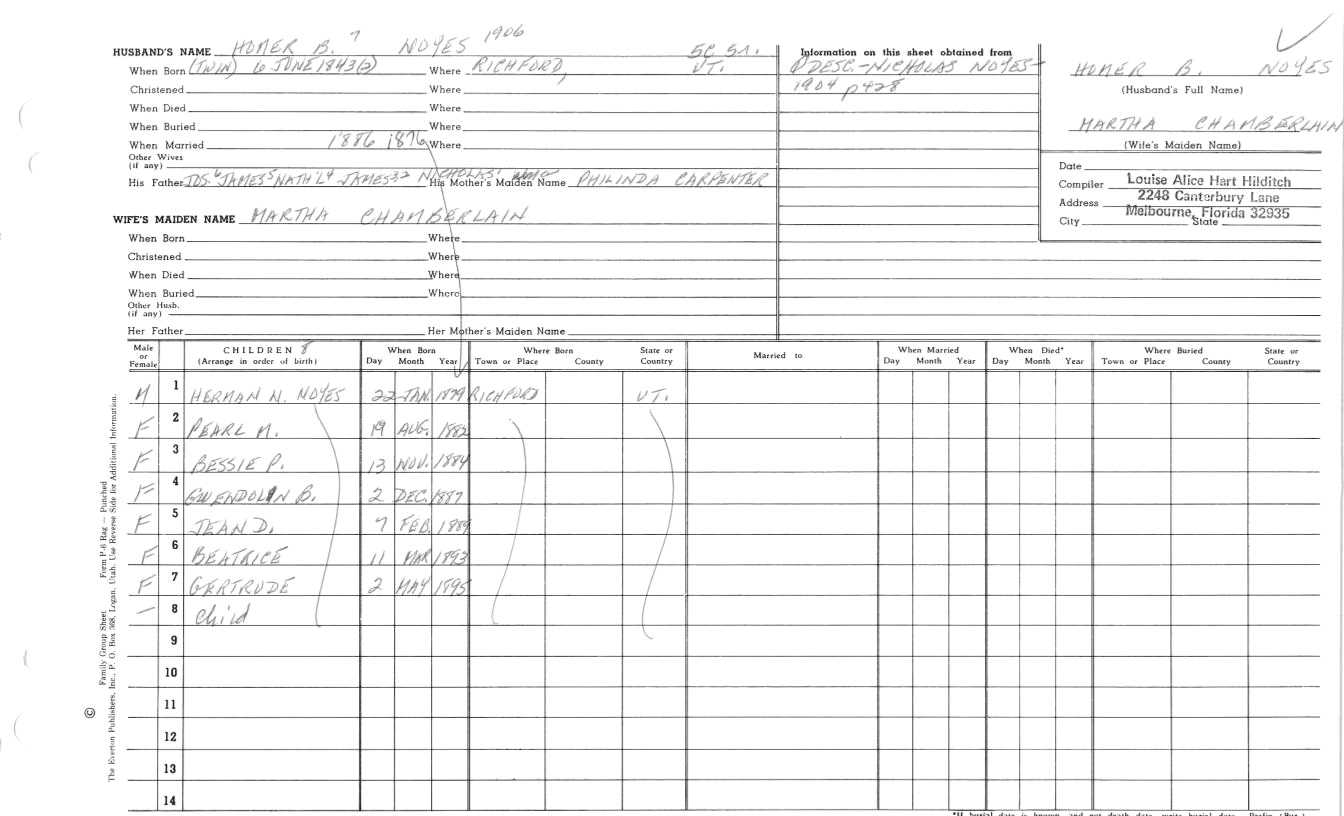 HUSBAND'S NAME HOMER B. 7 NOYES 1906
When Born (TWIN) 6 JUNE 1843(2) Where RICHFORD, VT.
Christened Where
When Died Where
When Buried Where
When Married 1886 1876 Where
Other Wives
(if any)
His Father JOS.6 JAMES5 NATH'L4 JAMES3,2 NICHOLAS1 His Mother's Maiden Name PHILINDA CARPENTER
WIFE'S MAIDEN NAME MARTHA CHAMBERLAIN
When Born Where
Christened Where
When Died Where
When Buried Where
Other Husb.
(if any)
Her Father Her Mother's Maiden Name
Information on this sheet obtained from
DESC.-NICHOLAS NOYES-
1904 p428
HOMER B. NOYES
(Husband's Full Name)
MARTHA CHAMBERLAIN
(Wife's Maiden Name)
Date
Compiler Louise Alice Hart Hilditch
Address 2248 Canterbury Lane
Melbourne, Florida 32935
City State
Male or Female CHILDREN 8 (Arrange in order of birth) When Born Day Month Year Where Born Town or Place County State or Country Married to When Married Day Month Year When Died* Day Month Year Where Buried Town or Place County State or Country
M 1 HERMAN N. NOYES 22 JAN. 1879 RICHFORD VT.
F 2 PEARL M. 19 AUG. 1882
F 3 BESSIE P. 13 NOV. 1884
F 4 GWENDOLIN B. 2 DEC. 1887
F 5 JEAN D. 7 FEB. 1889
F 6 BEATRICE 11 MAR 1893
F 7 GERTRUDE 2 MAY 1895
— 8 Child
9
10
11
12
13
14
Family Group Sheet Form P-6 Rag — Punched
© The Everton Publishers, Inc., P. O. Box 368, Logan, Utah. Use Reverse Side for Additional Information.